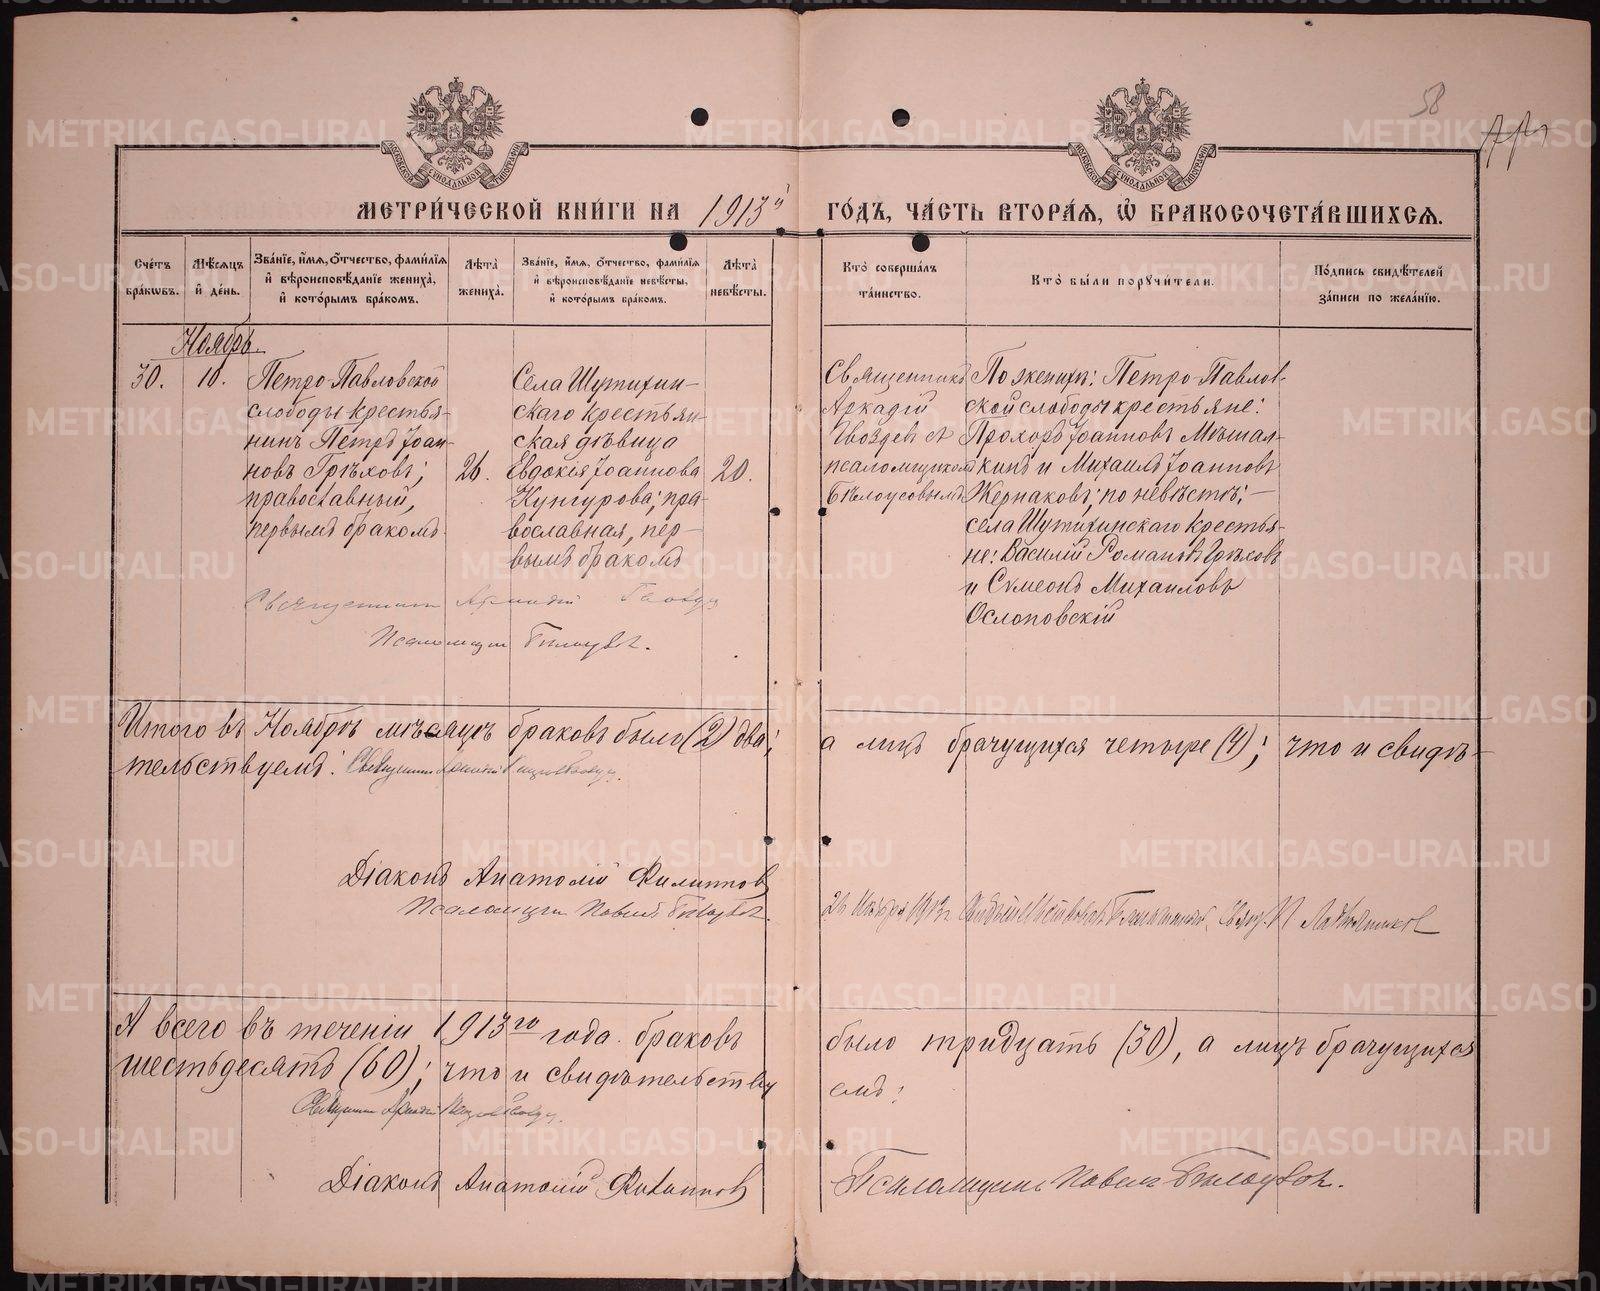 58
МОСКОВСКОЙ СѴНОДАЛЬНОЙ ТИПОГРАФІИ
МОСКОВСКОЙ СѴНОДАЛЬНОЙ ТИПОГРАФІИ
МЕТРИ́ЧЕСКОЙ КНИ́ГИ НА 1913й ГО́ДЪ, ЧА́СТЬ ВТОРА́Я, Ѽ БРАКОСОЧЕТА́ВШИХСЯ.
Сче́тъ бра́кѡвъ.
Мѣ́сяцъ и де́нь.
Зва́ніе, и́мя, о́тчество, фами́лія и вѣроисповѣ́даніе жениха̀, и кото́рымъ бра́комъ.
Лѣ́та жениха̀.
Зва́ніе, и́мя, о́тчество, фами́лія и вѣроисповѣ́даніе невѣ́сты, и кото́рымъ бра́комъ.
Лѣ́та невѣ́сты.
Кто̀ соверша́лъ та́инство.
Кто̀ бы́ли порꙋчи́тели.
По́дпись свидѣ́телей за́писи по жела́нію.
Ноябрь.
30.
10.
Петро-Павловской
слободы крестья-
нинъ Петръ Іоан-
новъ Грѣховъ;
православный,
первымъ бракомъ.
26.
Села Шутихин-
скаго крестьян-
ская дѣвица
Евдокія Іоаннова
Кунгурова; пра-
вославная, пер-
вымъ бракомъ
20.
Священникъ
Аркадій
Гвоздевъ съ
псаломщикомъ
Бѣлоусовымъ
По женихѣ: Петро-Павлов-
ской слободы крестьяне:
Прохоръ Іоанновъ Мѣшал-
кинъ и Михаилъ Іоанновъ
Жернаковъ; по невѣстѣ:-
села Шутихинскаго крестья-
не: Василій Романовъ Грѣховъ
и Сѵмеонъ Михаиловъ
Ослоповскій
Священникъ Аркадій Гвоздевъ
Псаломщикъ Бѣлоусовъ.
Итого въ Ноябрѣ мѣсяцѣ браковъ было (2) два; а лицъ брачущихся четыре (4); что и свидѣ-
тельствуемъ: Священникъ Аркадій Гвоздевъ.
Діаконъ Анатолій Филипповъ
Псаломщикъ Павелъ Бѣлоусовъ.
1913 г. Свящ. Ладыжниковъ
А всего въ теченіи 1913го года браковъ было тридцать (30), а лицъ брачущихся
шестьдесятъ (60); что и свидѣтельствуемъ:
Священникъ Аркадій Гвоздевъ.
Діаконъ Анатолій Филипповъ
Псаломщикъ Павелъ Бѣлоусовъ.
METRIKI.GASO-URAL.RU